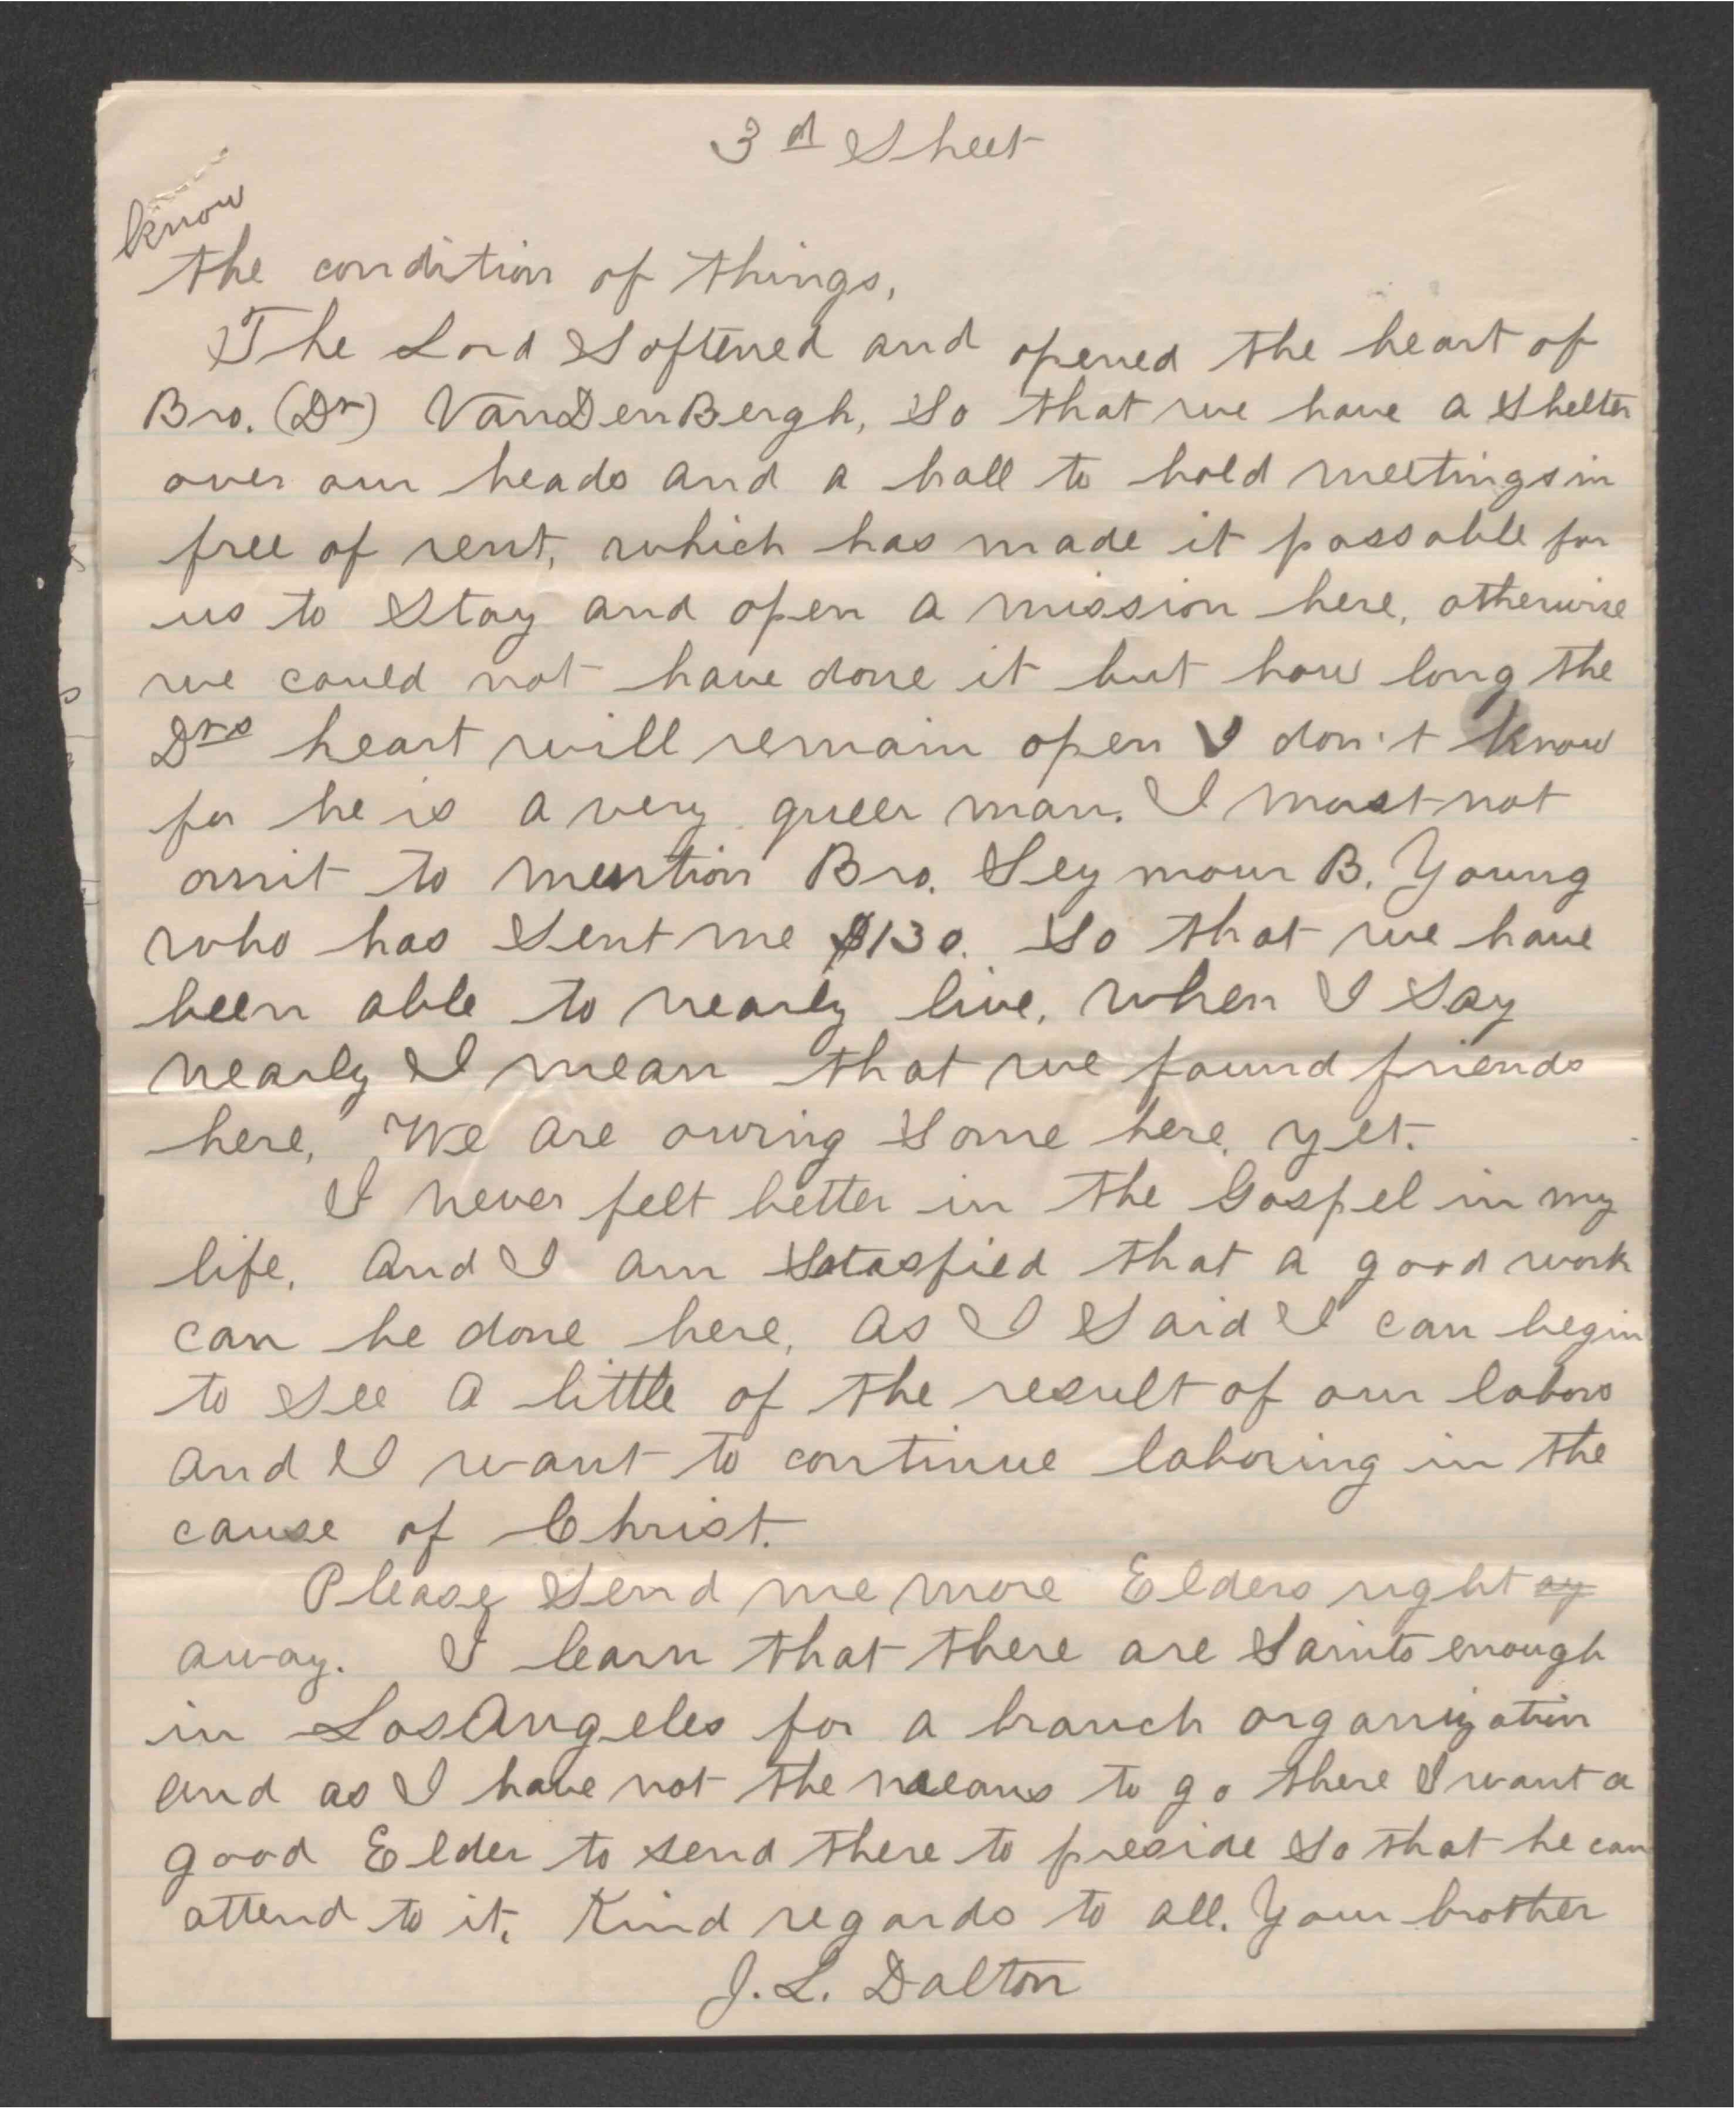 3d Sheet
know
the condition of things,
The Lord Softened and opened the heart of
Bro. (Dr) VanDenBergh, So that we have a Shelter
over our heads and a hall to hold meetings in
free of rent, which has made it possable for
us to Stay and open a mission here, otherwise
we could not have done it but how long the
Drs heart will remain open I don't know
for he is a very queer man. I must not
omit to mention Bro. Seymour B. Young
who has Sent me $130. So that we have
been able to nearly live, when I Say
nearly I mean that we found friends
here, We are owing Some here, yet.
I never felt better in the Gospel in my
life, and I am Satasfied that a good work
can be done here, as I Said I can begin
to See a little of the result of our labors
and I want to continue laboring in the
cause of Christ.
Please Send me more Elders right ay
away. I learn that there are Saints enough
in Los Angeles for a branch organization
and as I have not the means to go there I want a
good Elder to send there to preside So that he can
attend to it. Kind regards to all. Your brother
J. L. Dalton